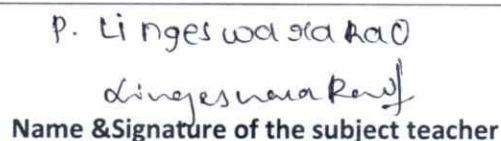 P. Lingeswara Rao
Lingeswara Rao
Name &Signature of the subject teacher